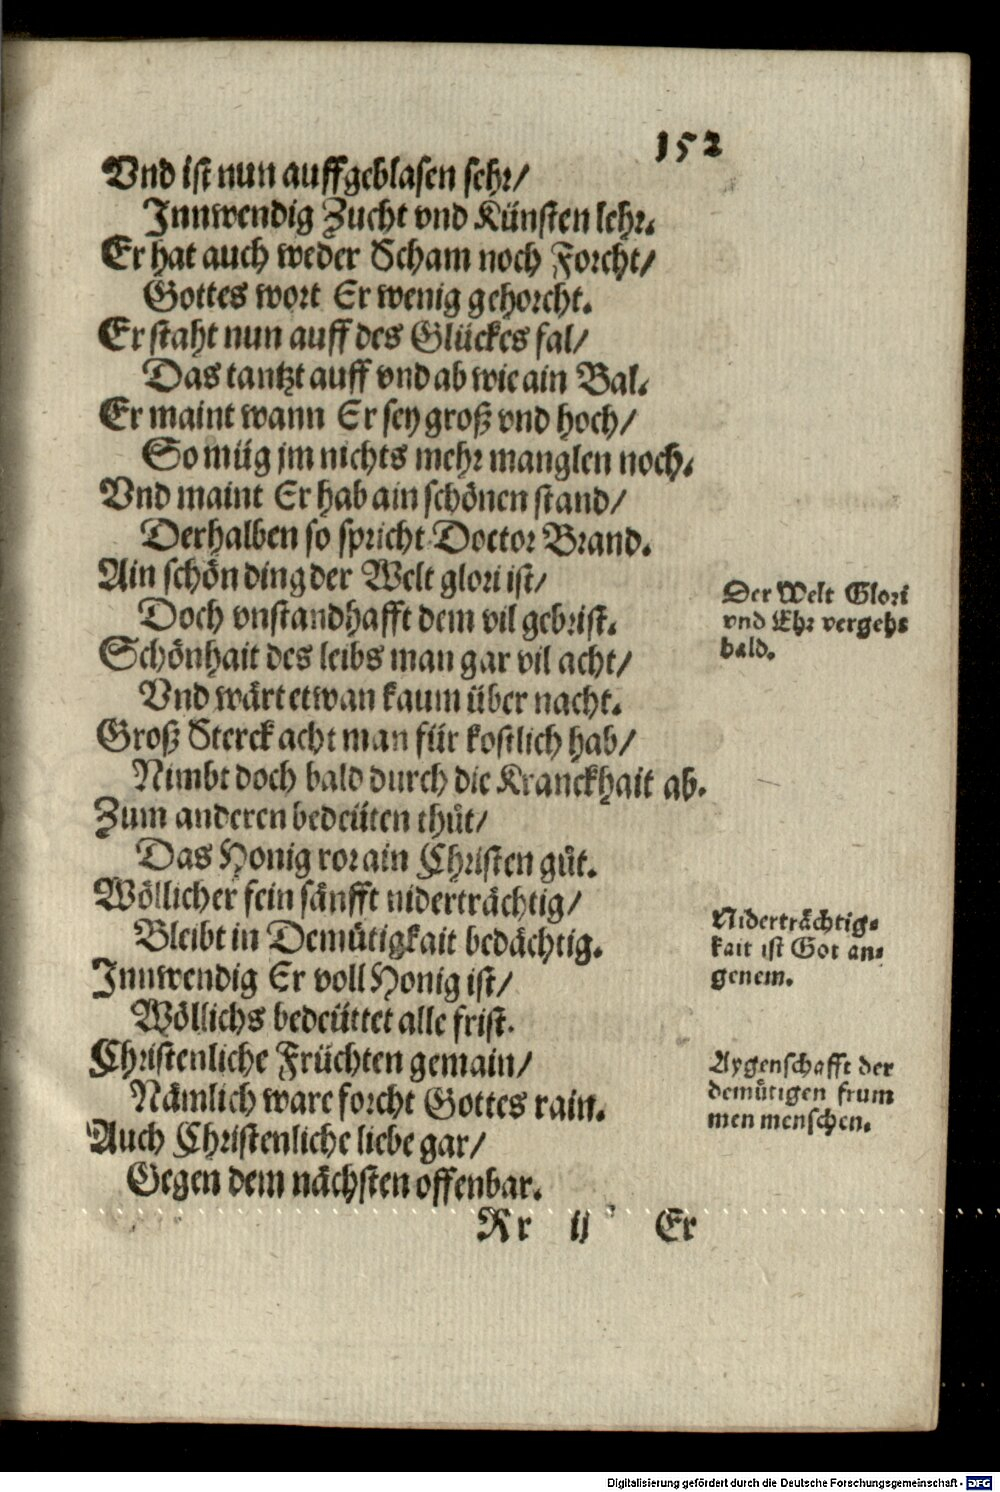 152
Vnd ist nun auffgeblasen sehr/
Innwendig Zucht vnd Künsten lehr.
Er hat auch weder Scham noch Forcht/
Gottes wort Er wenig gehorcht.
Er staht nun auff des Glückes fal/
Das tantzt auff vnd ab wie ain Bal.
Er maint wann Er sey groß vnd hoch/
So müg jm nichts mehr manglen noch.
Vnd maint Er hab ain schönen stand/
Derhalben so spricht Doctor Brand.
Ain schön ding der Welt glori ist/
Doch vnstandhafft dem vil gebrist.
Schönhait des leibs man gar vil acht/
Vnd wärt etwan kaum über nacht.
Groß Sterck acht man für kostlich hab/
Nimbt doch bald durch die Kranckhait ab.
Zum anderen bedeüten thůt/
Das Honig ror ain Christen gůt.
Wöllicher fein sänfft niderträchtig/
Bleibt in Demütigkait bedächtig.
Innwendig Er voll Honig ist/
Wöllichs bedeüttet alle frist.
Christenliche Früchten gemain/
Nämlich ware forcht Gottes rain.
Auch Christenliche liebe gar/
Gegen dem nächsten offenbar.
Rr ij Er
Der Welt Glori
vnd Ehr vergehs
bald.
Niderträchtig-
kait ist Got an-
genem.
Aygenschafft der
demütigen frum
men menschen.
Digitalisierung gefördert durch die Deutsche Forschungsgemeinschaft - DFG